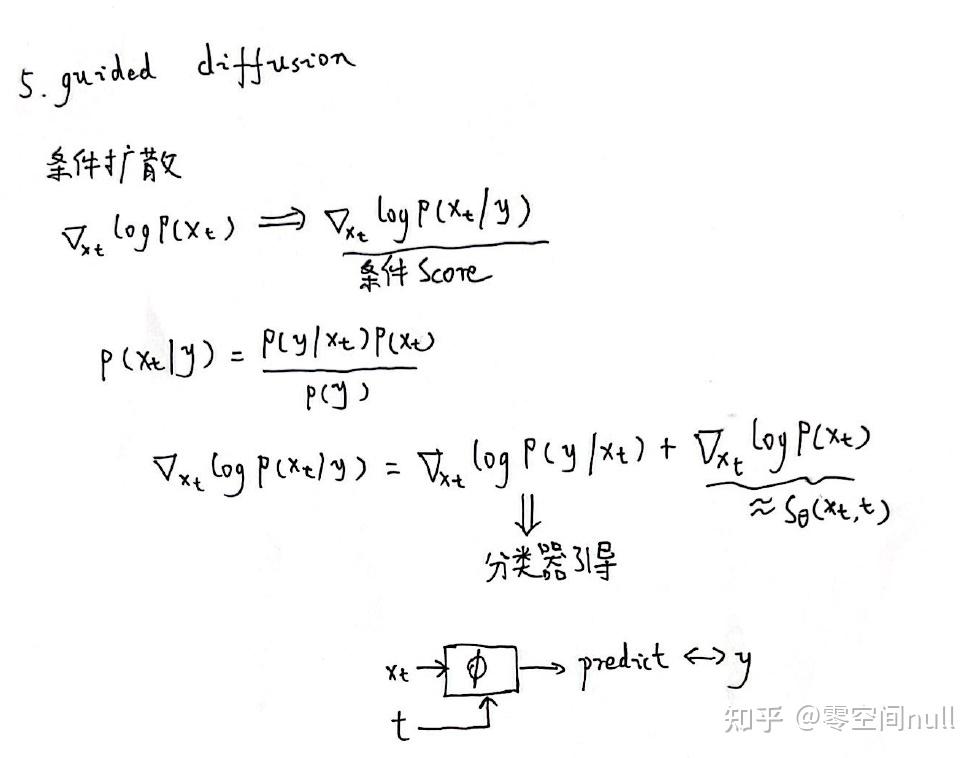 5. guided diffusion
条件扩散
∇xₜ log P(xₜ) ⟹ ∇xₜ log P(xₜ/y)
条件 Score
P(xₜ|y) = P(y/xₜ)P(xₜ) / P(y)
∇xₜ log P(xₜ/y) = ∇xₜ log P(y/xₜ) + ∇xₜ log P(xₜ)
≈ Sθ(xₜ,t)
⇓
分类器引导
xₜ → ϕ → predict ↔ y
t
知乎 @零空间null